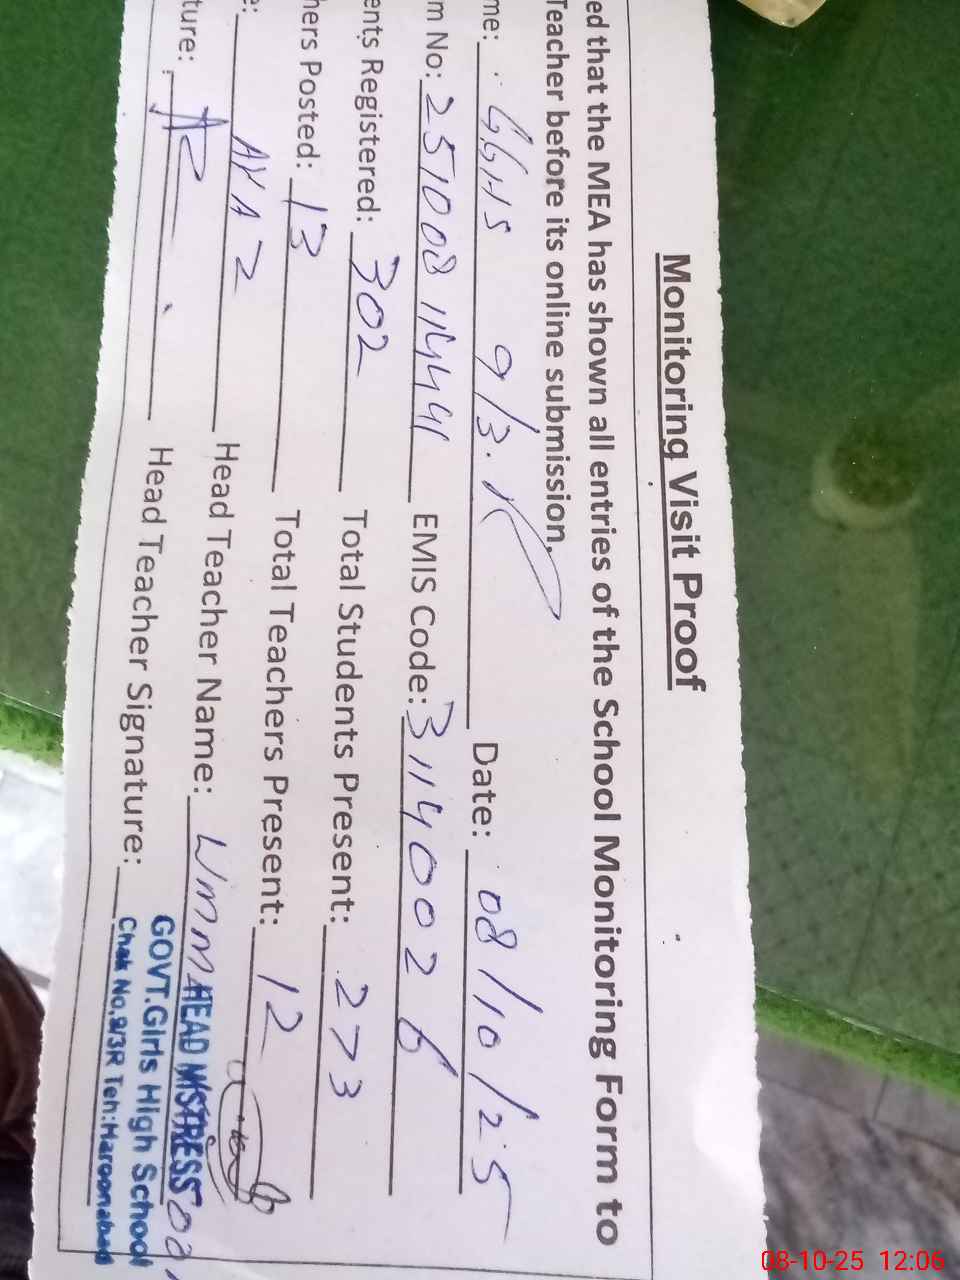 Monitoring Visit Proof
ed that the MEA has shown all entries of the School Monitoring Form to
Teacher before its online submission.
me: GGHS 9/3.R Date: 08/10/25
m No: 251008114441 EMIS Code: 31140026
ents Registered: 302 Total Students Present: 273
hers Posted: 13 Total Teachers Present: 12
e: Head Teacher Name:
ture: Head Teacher Signature:
HEAD MISTRESS
GOVT.Girls High School
Chak No.9/3R Teh:Haroonabad
08-10-25 12:06